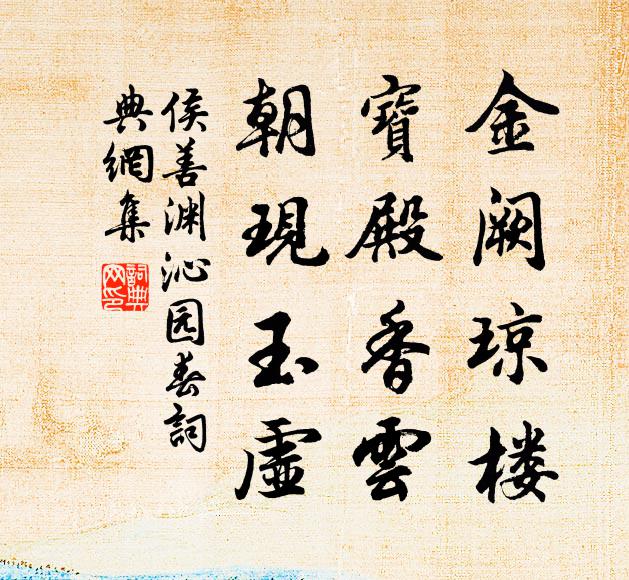 金阙琼楼
寶殿香雲
朝現玉虛
侯善渊沁园春詞
典網集
詞典网印